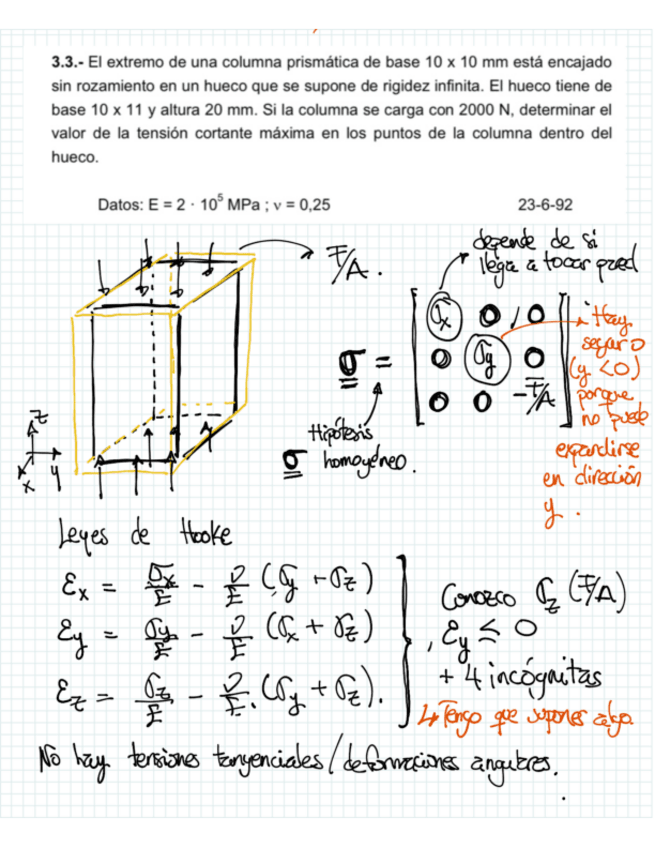 3.3.- El extremo de una columna prismática de base 10 x 10 mm está encajado
sin rozamiento en un hueco que se supone de rigidez infinita. El hueco tiene de
base 10 x 11 y altura 20 mm. Si la columna se carga con 2000 N, determinar el
valor de la tensión cortante máxima en los puntos de la columna dentro del
hueco.
Datos: E = 2 · 10⁵ MPa ; ν = 0,25
23-6-92
depende de si
llega a tocar pared
F/A.
σ =
σx 0 , 0
0 σy 0
0 0 -F/A
Hay
seguro
(y <0)
porque
no puede
expandirse
en dirección
y.
z
y
x
Hipótesis
σ homogéneo.
Leyes de Hooke
εx = σx/E - ν/E (σy + σz)
εy = σy/E - ν/E (σx + σz)
εz = σz/E - ν/E. (σy + σz).
Conozco σz (F/A)
, εy ≤ 0
+ 4 incógnitas
↳ Tengo que suponer algo.
No hay tensiones tangenciales / deformaciones angulares.